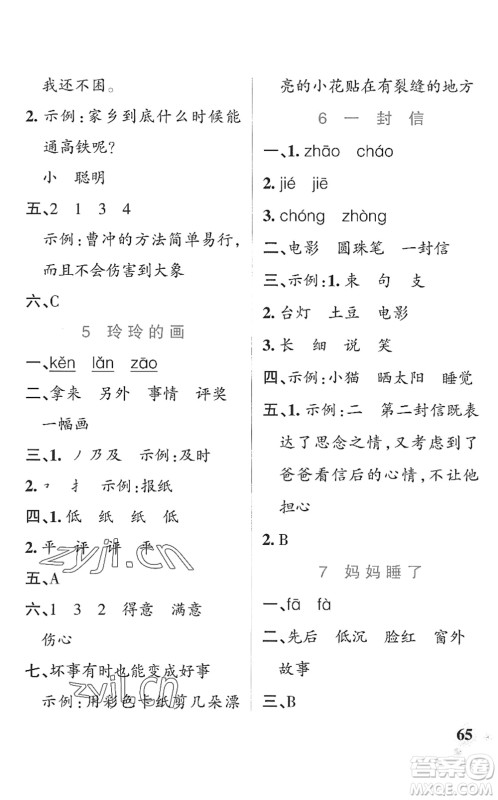 我还不困。
2. 示例:家乡到底什么时候能
通高铁呢?
小 聪明
五、2 1 3 4
示例:曹冲的方法简单易行,
而且不会伤害到大象
六、C
5 玲玲的画
一、kěn lǎn zāo
二、拿来 另外 事情 评奖
一幅画
三、1. ノ 乃 及 示例:及时
2. ㇕ 扌 示例:报纸
四、1. 低 纸 纸 低
2. 平 评 评 平
五、A
六、1 3 2 得意 满意
伤心
七、坏事有时也能变成好事
示例:用彩色卡纸剪几朵漂
亮的小花贴在有裂缝的地方
6 一封信
一、1. zhāo cháo
2. jié jiē
3. chóng zhòng
二、电影 圆珠笔 一封信
三、示例:1. 束 句 支
2. 台灯 土豆 电影
3. 长 细 说 笑
四、示例:小猫 晒太阳 睡觉
五、1. 示例:二 第二封信既表
达了思念之情,又考虑到了
爸爸看信后的心情,不让他
担心
2. B
7 妈妈睡了
一、fā fà
二、先后 低沉 脸红 窗外
故事
三、B
65
zyjl.cn
zyjl.cn
答案圈
MXQE.COM